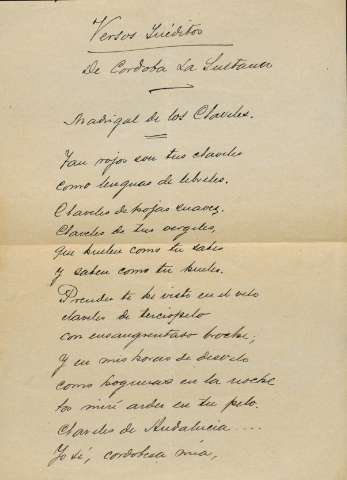 Versos Inéditos
De Cordoba La Sultana
Madrigal de los Claveles.
Tan rojos son tus claveles
como lenguas de lebreles.
Claveles de hojas suaves.
Claveles de tus vergeles,
que huelen como tu sabes
y saben como tu hueles.
Prender te he visto en el velo
claveles de terciopelo
con ensangrentado broche;
y en mis horas de desvelo
como hogueras en la noche
los miré arder en tu pelo.
Claveles de Andalucia ....
Yo sé, cordobesa mía,